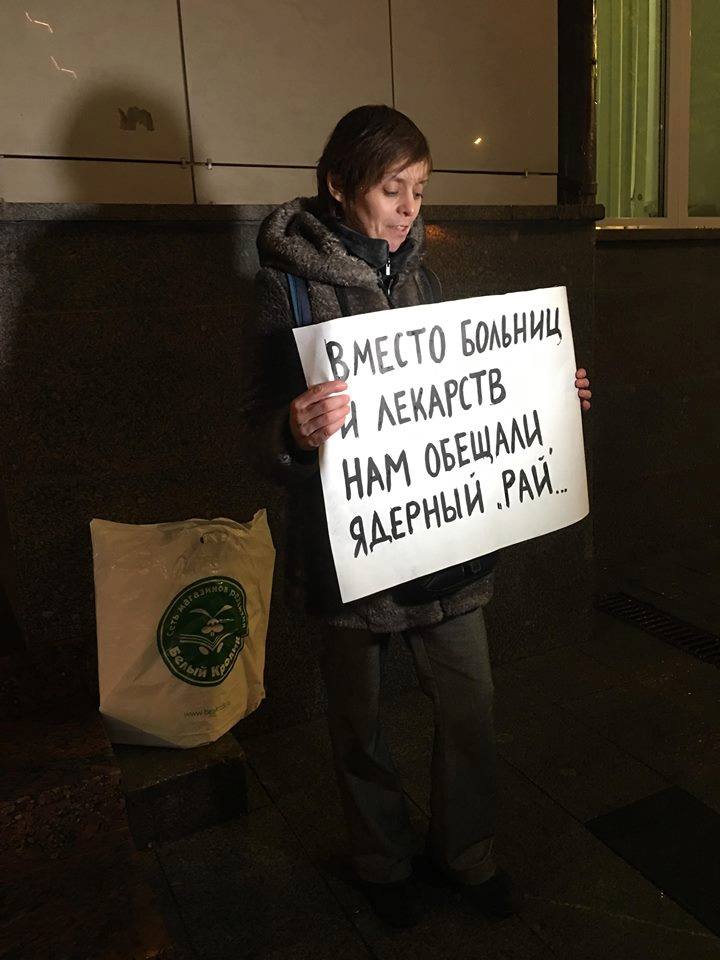 ВМЕСТО БОЛЬНИЦ
И ЛЕКАРСТВ
НАМ ОБЕЩАЛИ
ЯДЕРНЫЙ „РАЙ...
сеть магазинов
Белый Кролик